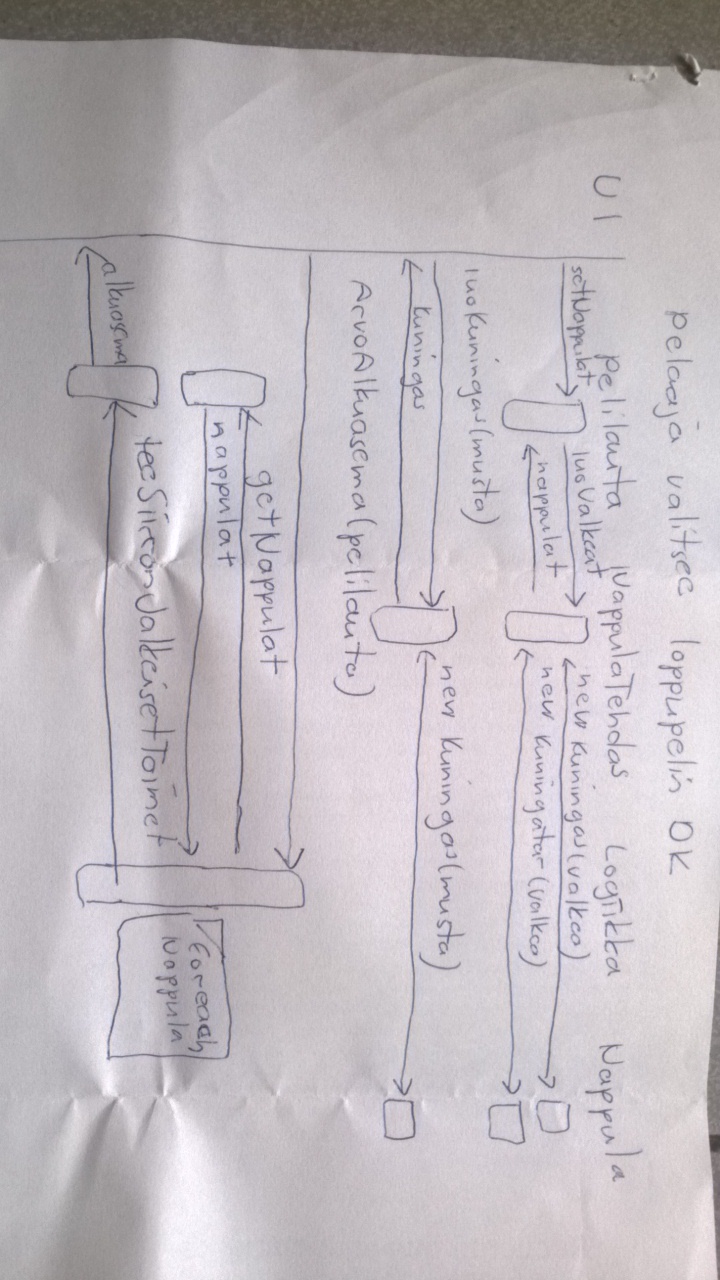 Pelaaja valitsee loppupelin OK
UI Pelilauta NappulaTehdas Logiikka Nappula
setNappulat luoValkeat new Kuningas(valkea)
nappulat new Kuningatar(valkea)
luoKuningas(musta)
kuningas new Kuningas(musta)
ArvoAlkuasema(pelilauta)
getNappulat
nappulat
foreach
Nappula
teeSiirronJalkeisetToimet
alkuasema